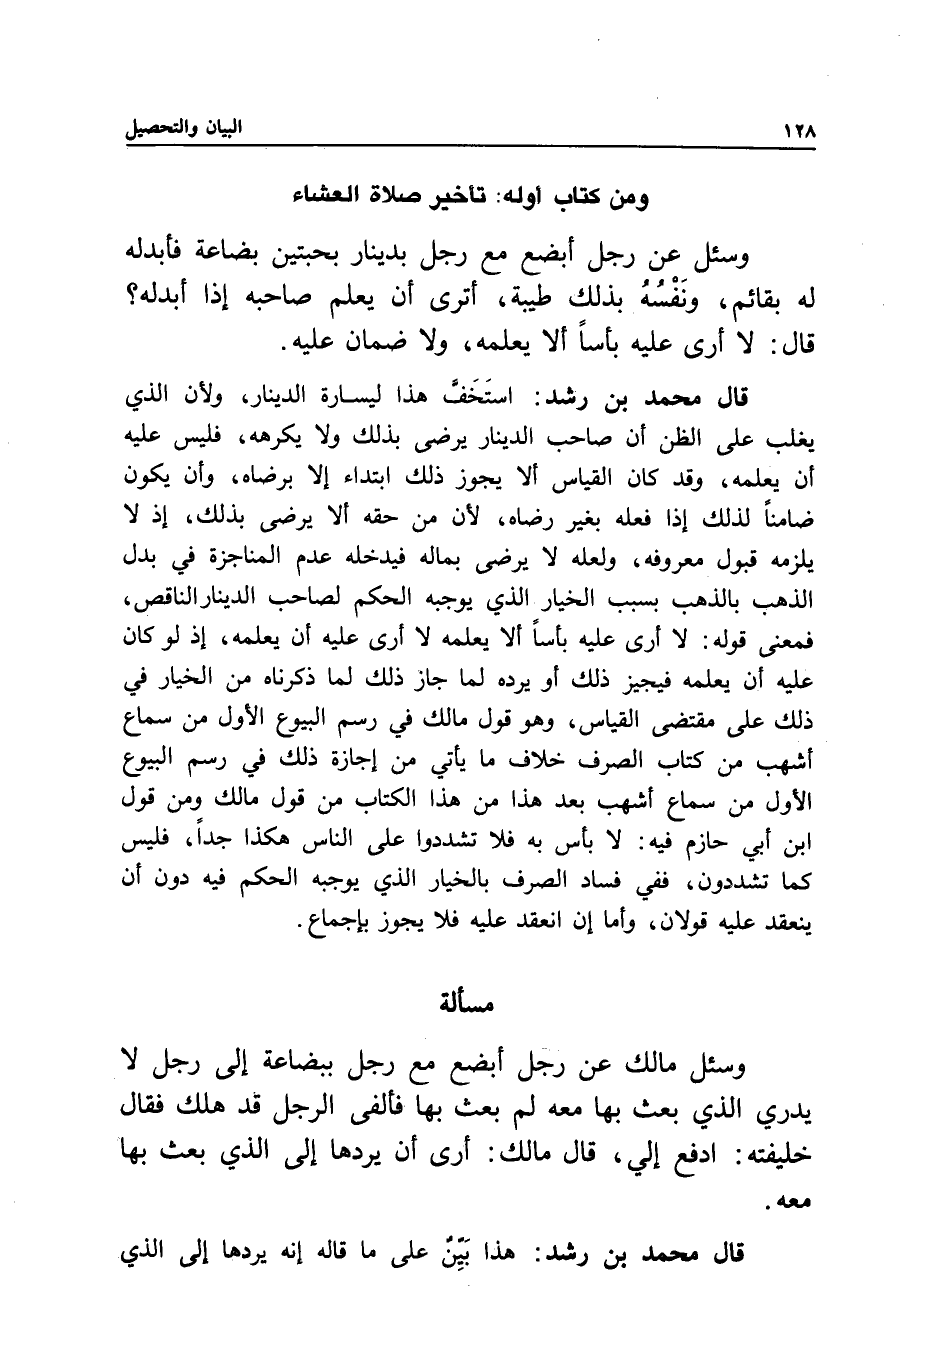 ١٢٨ البيان والتحصيل
ومن كتاب أوله: تأخير صلاة العشاء
وسئل عن رجل أبضع مع رجل بدينار بحبتين بضاعة فأبدله
له بقائم، ونَفْسُهُ بذلك طيبة، أترى أن يعلم صاحبه إذا أبدله؟
قال: لا أرى عليه بأساً ألا يعلمه، ولا ضمان عليه.
قال محمد بن رشد: استَخَفَّ هذا ليسارة الدينار، ولأن الذي
يغلب على الظن أن صاحب الدينار يرضى بذلك ولا يكرهه، فليس عليه
أن يعلمه، وقد كان القياس ألا يجوز ذلك ابتداء إلا برضاه، وأن يكون
ضامناً لذلك إذا فعله بغير رضاه، لأن من حقه ألا يرضى بذلك، إذ لا
يلزمه قبول معروفه، ولعله لا يرضى بماله فيدخله عدم المناجزة في بدل
الذهب بالذهب بسبب الخيار الذي يوجبه الحكم لصاحب الدينار الناقص،
فمعنى قوله: لا أرى عليه بأساً ألا يعلمه لا أرى عليه أن يعلمه، إذ لو كان
عليه أن يعلمه فيجيز ذلك أو يرده لما جاز ذلك لما ذكرناه من الخيار في
ذلك على مقتضى القياس، وهو قول مالك في رسم البيوع الأول من سماع
أشهب من كتاب الصرف خلاف ما يأتي من إجازة ذلك في رسم البيوع
الأول من سماع أشهب بعد هذا من هذا الكتاب من قول مالك ومن قول
ابن أبي حازم فيه: لا بأس به فلا تشددوا على الناس هكذا جداً، فليس
كما تشددون، ففي فساد الصرف بالخيار الذي يوجبه الحكم فيه دون أن
ينعقد عليه قولان، وأما إن انعقد عليه فلا يجوز بإجماع.
مسألة
وسئل مالك عن رجل أبضع مع رجل ببضاعة إلى رجل لا
يدري الذي بعث بها معه لم بعث بها فألفى الرجل قد هلك فقال
خليفته: ادفع إلي، قال مالك: أرى أن يردها إلى الذي بعث بها
معه.
قال محمد بن رشد: هذا بَيِّنٌ على ما قاله إنه يردها إلى الذي